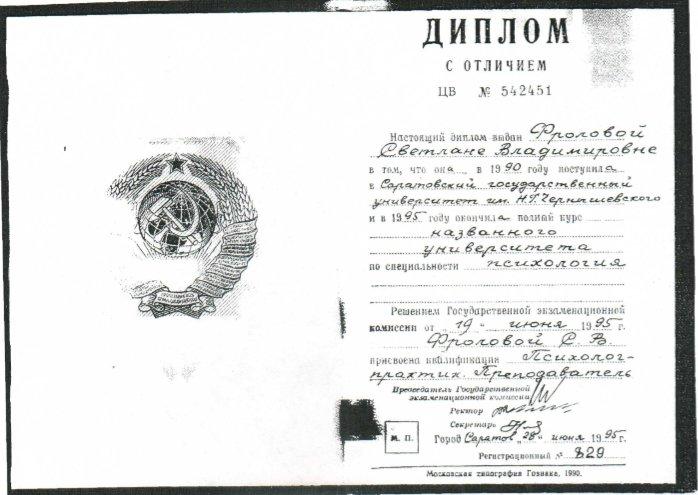 ДИПЛОМ
С ОТЛИЧИЕМ
ЦВ № 542451
Настоящий диплом выдан Фроловой
Светлане Владимировне
в том, что она в 1990 году поступила
в Саратовский государственный
университет им. Н.Г. Чернышевского
и в 1995 году окончила полный курс
названного
университета
по специальности психология
Решением Государственной экзаменационной
комиссии от "19" июня 1995 г.
Фроловой С. В.
присвоена квалификация Психолог-
практик. Преподаватель
Председатель Государственной
экзаменационной комиссии
Ректор
Секретарь
М. П.
Город Саратов "28" июня 1995 г.
Регистрационный № 829
Московская типография Гознака, 1990.